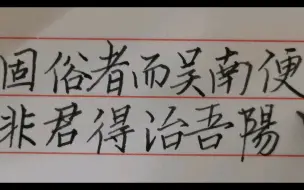 固俗者而吴南便
非君得治吾陽